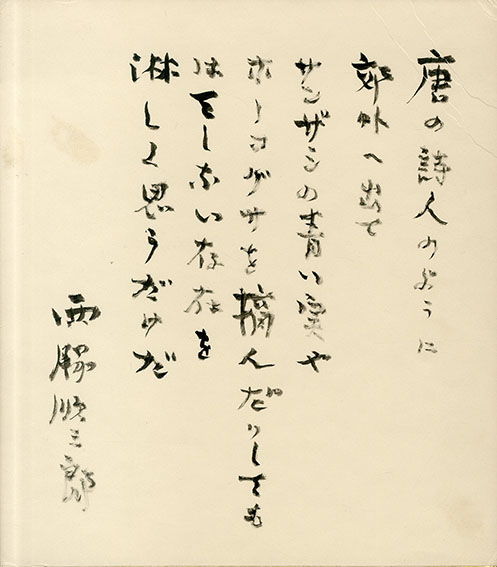 唐の詩人のように
郊外へ出て
サンザシの青い実や
ホーコグサを摘んだりしても
はてしない存在を
淋しく思うだけだ
西脇順三郎